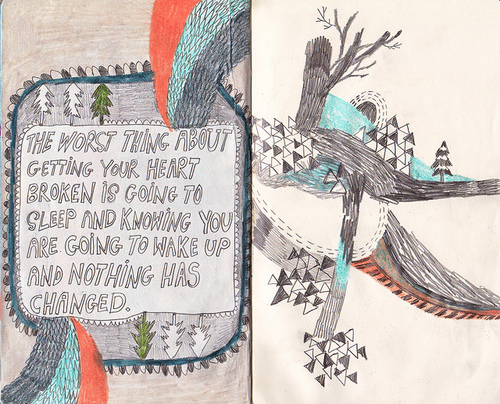 THE WORST THING ABOUT
GETTING YOUR HEART
BROKEN IS GOING TO
SLEEP AND KNOWING YOU
ARE GOING TO WAKE UP
AND NOTHING HAS
CHANGED.